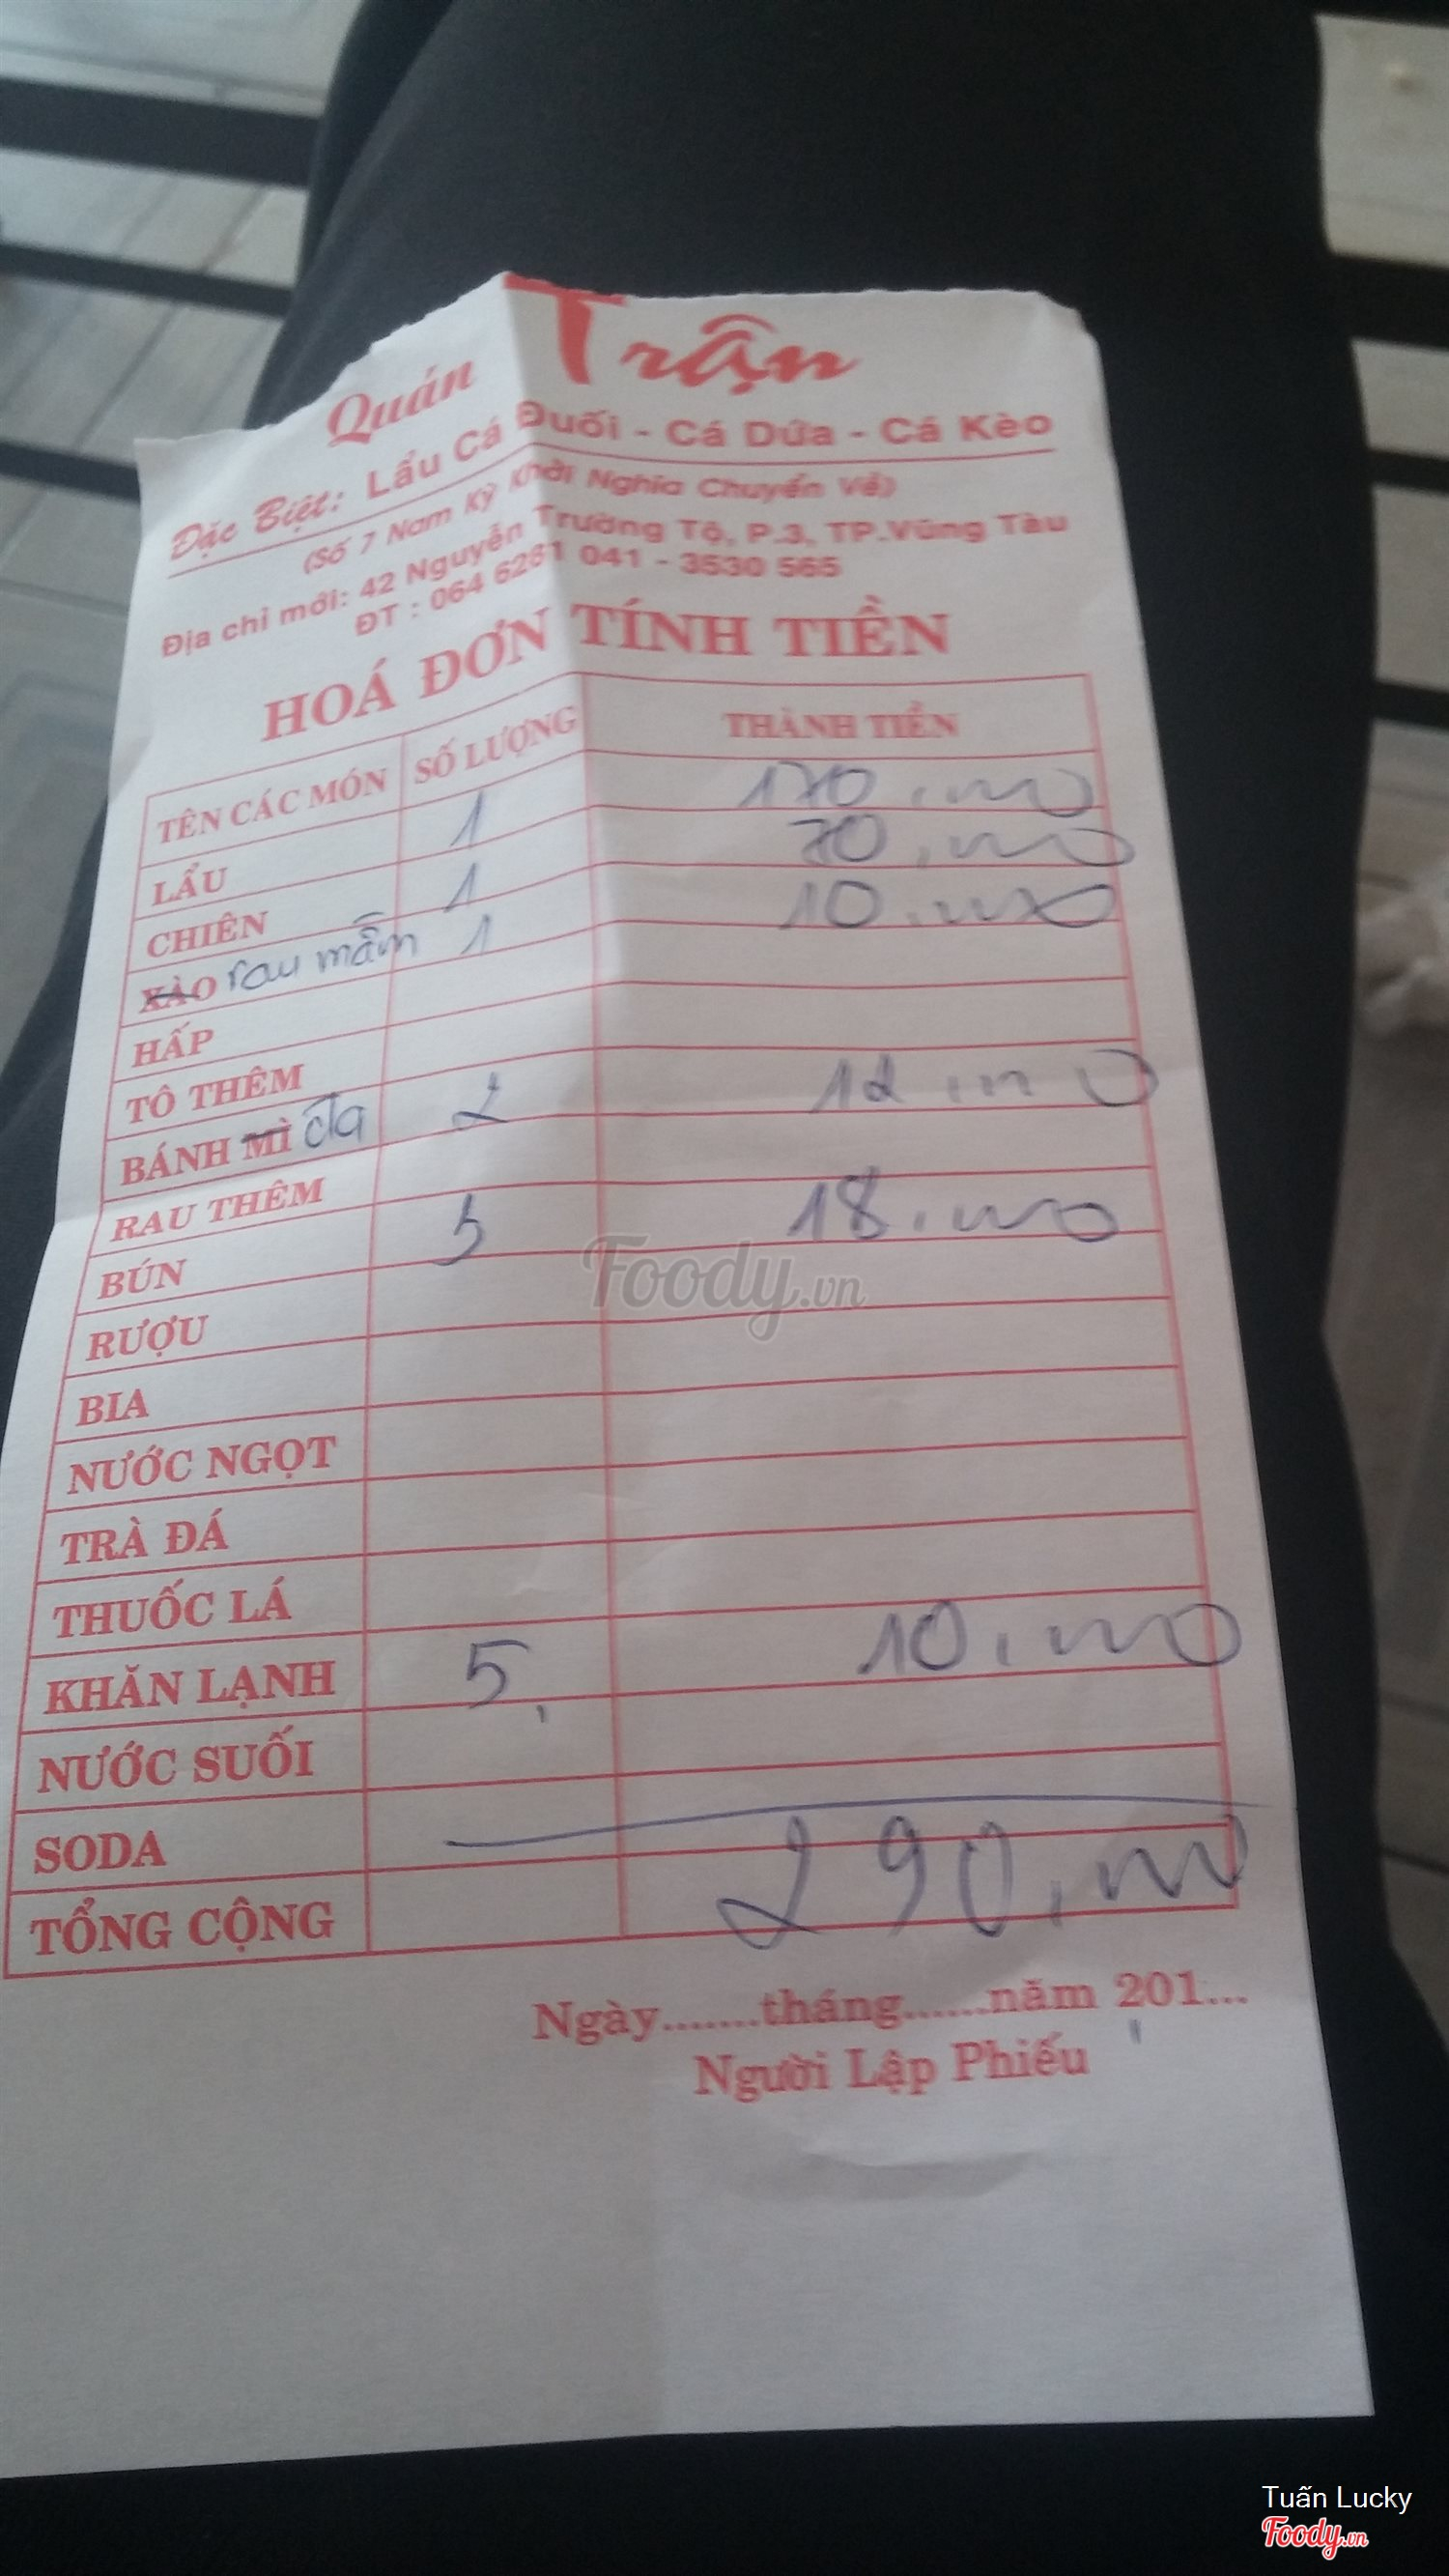 Quán Trận
Đặc Biệt: Lẩu Cá Đuối - Cá Dứa - Cá Kèo
(Số 7 Nam Kỳ Khởi Nghĩa Chuyển Về)
Địa chỉ mới: 42 Nguyễn Trường Tộ, P.3, TP.Vũng Tàu
ĐT : 064 6281 041 - 3530 565
HOÁ ĐƠN TÍNH TIỀN
TÊN CÁC MÓN SỐ LƯỢNG THÀNH TIỀN
LẨU 1 170.000
CHIÊN 1 70.000
XÀO rau mầm 1 10.000
HẤP
TÔ THÊM
BÁNH MÌ đa 2 12.000
RAU THÊM
BÚN 18.000
RƯỢU
BIA
NƯỚC NGỌT
TRÀ ĐÁ
THUỐC LÁ
KHĂN LẠNH 5 10.000
NƯỚC SUỐI
SODA
TỔNG CỘNG 290.000
Ngày.......tháng......năm 201...
Người Lập Phiếu
Foody.vn
Tuấn Lucky
Foody.vn